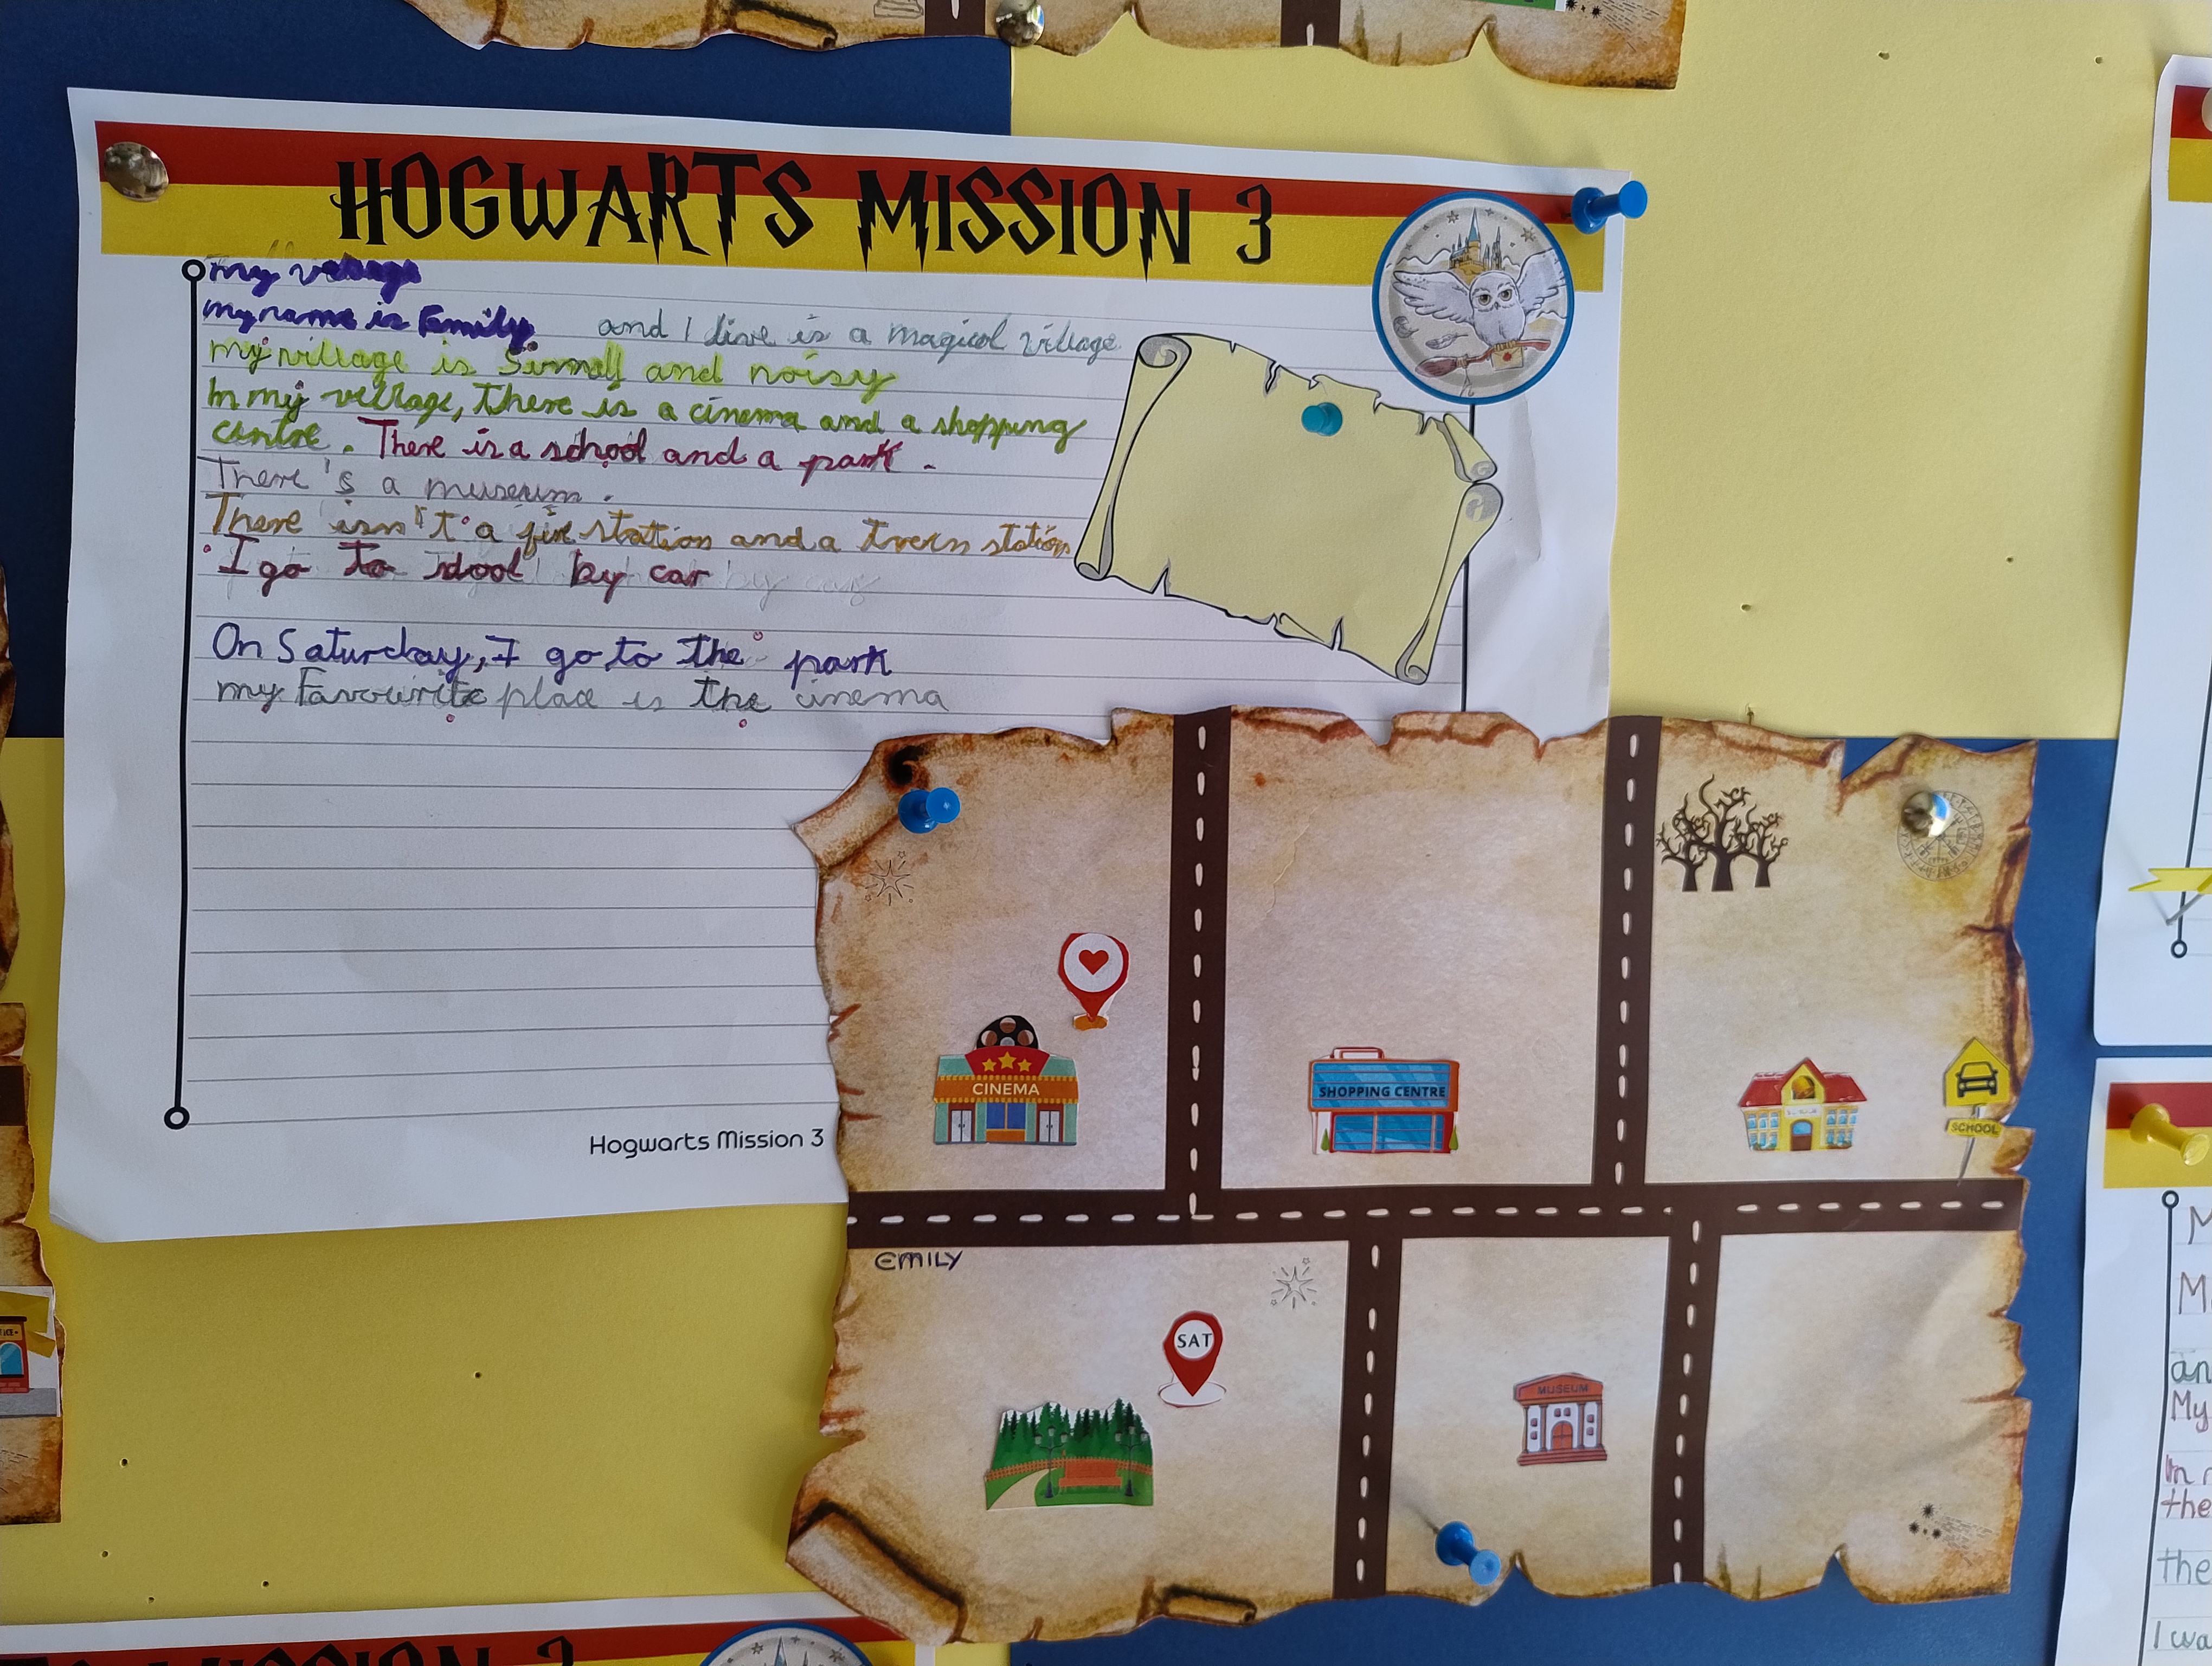 HOGWARTS MISSION 3
my village
my name is Emily and I live is a magical village.
my village is Smmall and noisy
In my village, There is a cinema and a shopping
centre. There is a school and a park.
There's a museum.
There isn't a fire station and a station
I go to school by car
On Saturday, I go to the park
my Favourite place is the cinema
Hogwarts Mission 3
CINEMA
SHOPPING CENTRE
SCHOOL
EMILY
SAT
MUSEUM
M
M
an
My
In
the
the
I wa